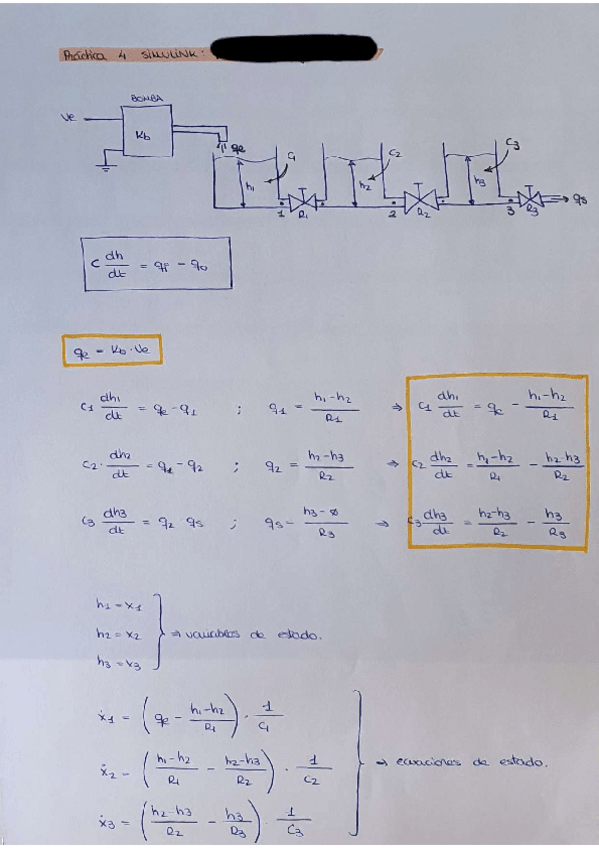 Práctica 4 SIMULINK:
BOMBA
Ve
Kb
qe
C1
C2
C3
h1
h2
h3
1
R1
2
R2
3
R3
qs
C dh/dt = qi - qo
qe = Kb · Ve
C1 · dh1/dt = qe - q1 ; q1 = (h1-h2)/R1 ⇒ C1 dh1/dt = qe - (h1-h2)/R1
C2 · dh2/dt = q1 - q2 ; q2 = (h2-h3)/R2 ⇒ C2 dh2/dt = (h1-h2)/R1 - (h2-h3)/R2
C3 dh3/dt = q2 qs ; qs - (h3-0)/R3 ⇒ C3 dh3/dt = (h2-h3)/R2 - h3/R3
h1 = x1
h2 = x2 ⇒ variables de estado.
h3 = x3
ẋ1 = (qe - (h1-h2)/R1) · 1/C1
ẋ2 = ((h1-h2)/R1 - (h2-h3)/R2) · 1/C2 ⇒ ecuaciones de estado.
ẋ3 = ((h2-h3)/R2 - h3/R3) · 1/C3